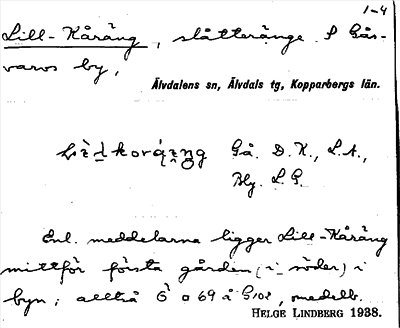 1-4
Lill-Kåräng, slåtteränge S Gås-
varvs by,
Älvdalens sn, Älvdals tg, Kopparbergs län.
Gå. D. K., L. A.,
Bly. L. G.
Enl. meddelarna ligger Lill-Kåräng
mittför första gården (i söder) i
byn; alltså G 069 å G102, meddelb.
HELGE LINDBERG 1938.